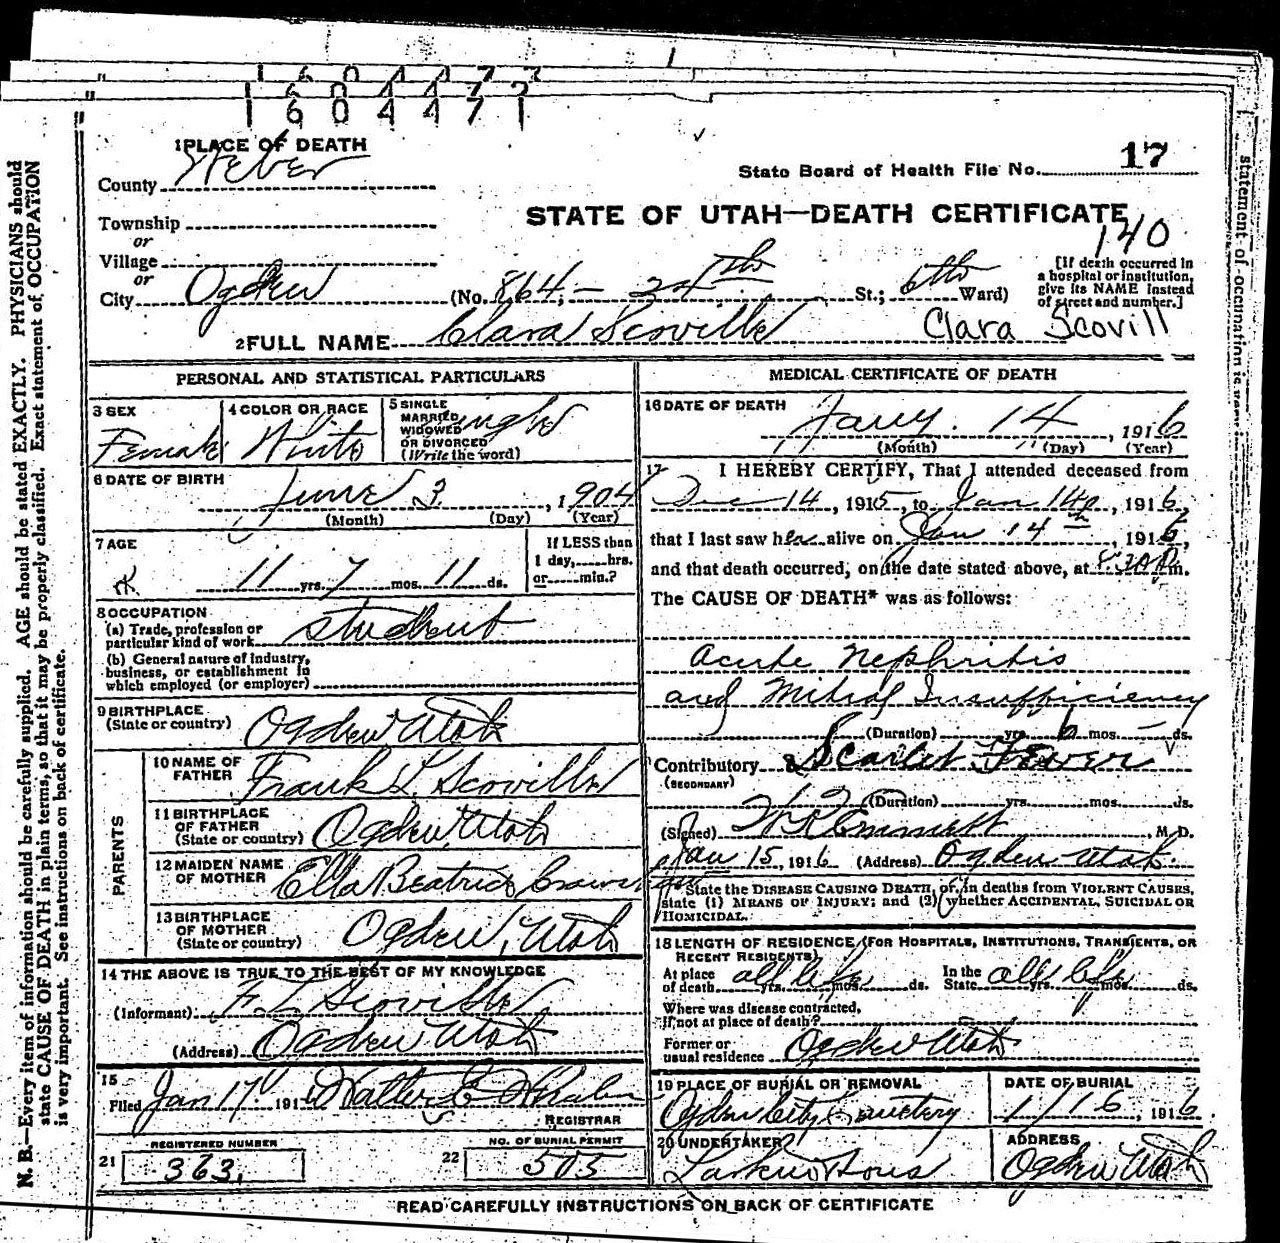 1604473
1604472
1604471
1 PLACE OF DEATH
County Weber
State Board of Health File No. 17
STATE OF UTAH—DEATH CERTIFICATE
140
Township
or
Village
or
City Ogden (No. 864 - 24th St.; 6th Ward)
[If death occurred in a hospital or institution, give its NAME instead of street and number.]
2 FULL NAME Clara Scoville Clara Scovill
PERSONAL AND STATISTICAL PARTICULARS
3 SEX Female
4 COLOR OR RACE White
5 SINGLE MARRIED WIDOWED OR DIVORCED (Write the word) Single
6 DATE OF BIRTH June 3, 1904
(Month) (Day) (Year)
7 AGE 11 yrs. 7 mos. 11 ds.
If LESS than 1 day, hrs. or min.?
8 OCCUPATION
(a) Trade, profession or particular kind of work student
(b) General nature of industry, business, or establishment in which employed (or employer)
9 BIRTHPLACE (State or country) Ogden Utah
PARENTS
10 NAME OF FATHER Frank L. Scoville
11 BIRTHPLACE OF FATHER (State or country) Ogden, Utah
12 MAIDEN NAME OF MOTHER Ella Beatrice Brown
13 BIRTHPLACE OF MOTHER (State or country) Ogden, Utah
14 THE ABOVE IS TRUE TO THE BEST OF MY KNOWLEDGE
(Informant) F. L. Scoville
(Address) Ogden Utah
15
Filed Jan 17 191 Walter E Whalen
REGISTRAR
REGISTERED NUMBER
21 363.
NO. OF BURIAL PERMIT
22 505
MEDICAL CERTIFICATE OF DEATH
16 DATE OF DEATH
Jany. 14, 1916
(Month) (Day) (Year)
17 I HEREBY CERTIFY, That I attended deceased from
Dec 14, 1915, to Jan 14, 1916,
that I last saw her alive on Jan 14th, 1916,
and that death occurred, on the date stated above, at 8:30 P m.
The CAUSE OF DEATH* was as follows:
acute Nephritis
and Mitral Insufficiency
(Duration) yrs. 6 mos. — ds.
Contributory Scarlet Fever
(SECONDARY)
(Duration) yrs. mos. ds.
(Signed) Emmett, M. D.
Jan 15, 1916 (Address) Ogden Utah.
*State the DISEASE CAUSING DEATH, or, in deaths from VIOLENT CAUSES, state (1) MEANS OF INJURY; and (2) whether ACCIDENTAL, SUICIDAL OR HOMICIDAL.
18 LENGTH OF RESIDENCE (FOR HOSPITALS, INSTITUTIONS, TRANSIENTS, OR RECENT RESIDENTS)
At place of death all life yrs. mos. ds. In the State all life yrs. mos. ds.
Where was disease contracted, if not at place of death?
Former or usual residence Ogden Utah
19 PLACE OF BURIAL OR REMOVAL Ogden City Cemetery
DATE OF BURIAL 1/16, 1916.
20 UNDERTAKER Larkin & Sons
ADDRESS Ogden Utah
READ CAREFULLY INSTRUCTIONS ON BACK OF CERTIFICATE
N. B.—Every item of information should be carefully supplied. AGE should be stated EXACTLY. PHYSICIANS should
state CAUSE OF DEATH in plain terms, so that it may be properly classified. Exact statement of OCCUPATION
is very important. See instructions on back of certificate.
statement of occupation is